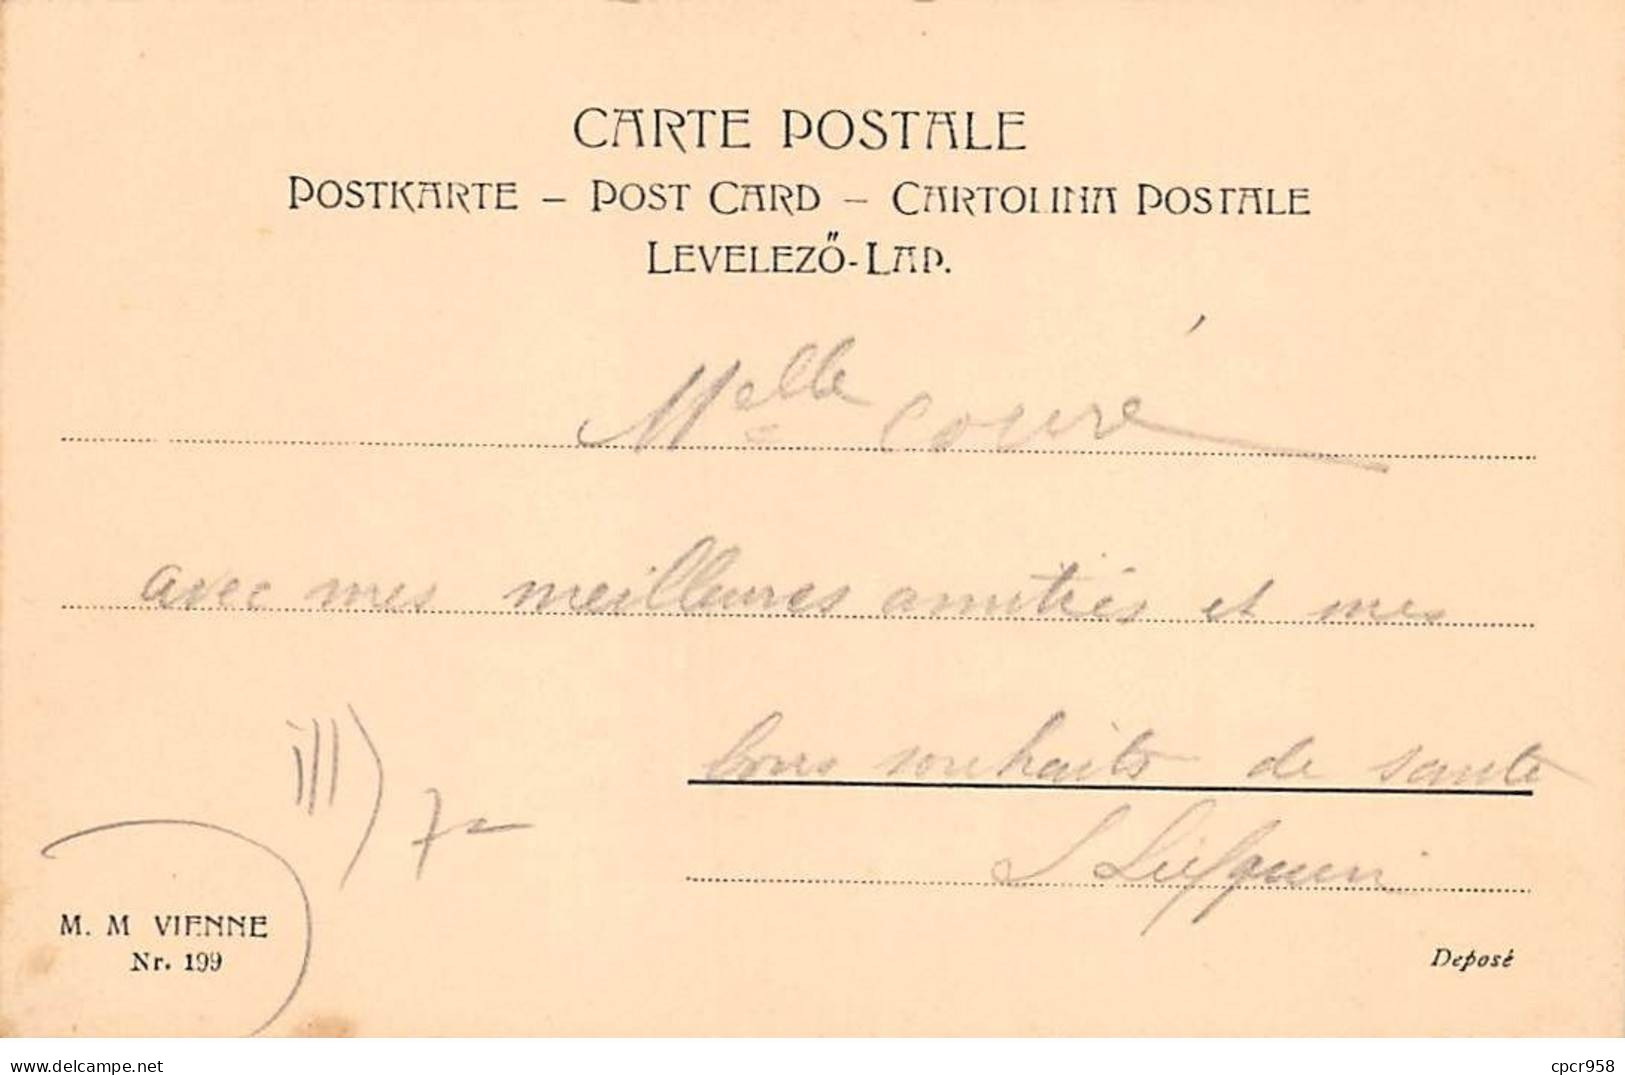 CARTE POSTALE
POSTKARTE – POST CARD – CARTOLINA POSTALE
LEVELEZŐ-LAP.
Melle Couré
avec mes meilleures amitiés et mes
bons souhaits de santé
7
M. M VIENNE
Nr. 199
Deposé
www.delcampe.net
cpcr958